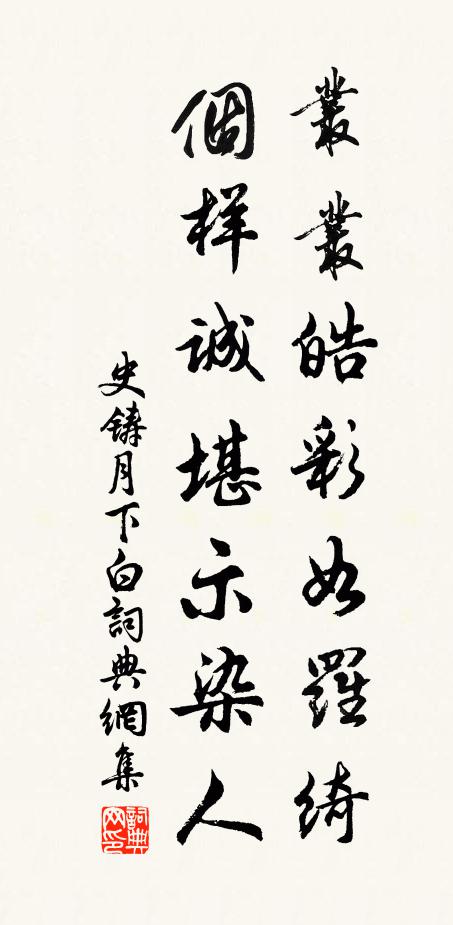 叢叢皓彩如羅綺
個样誠堪示染人
史鑄月下白詞典網集
詞典网印